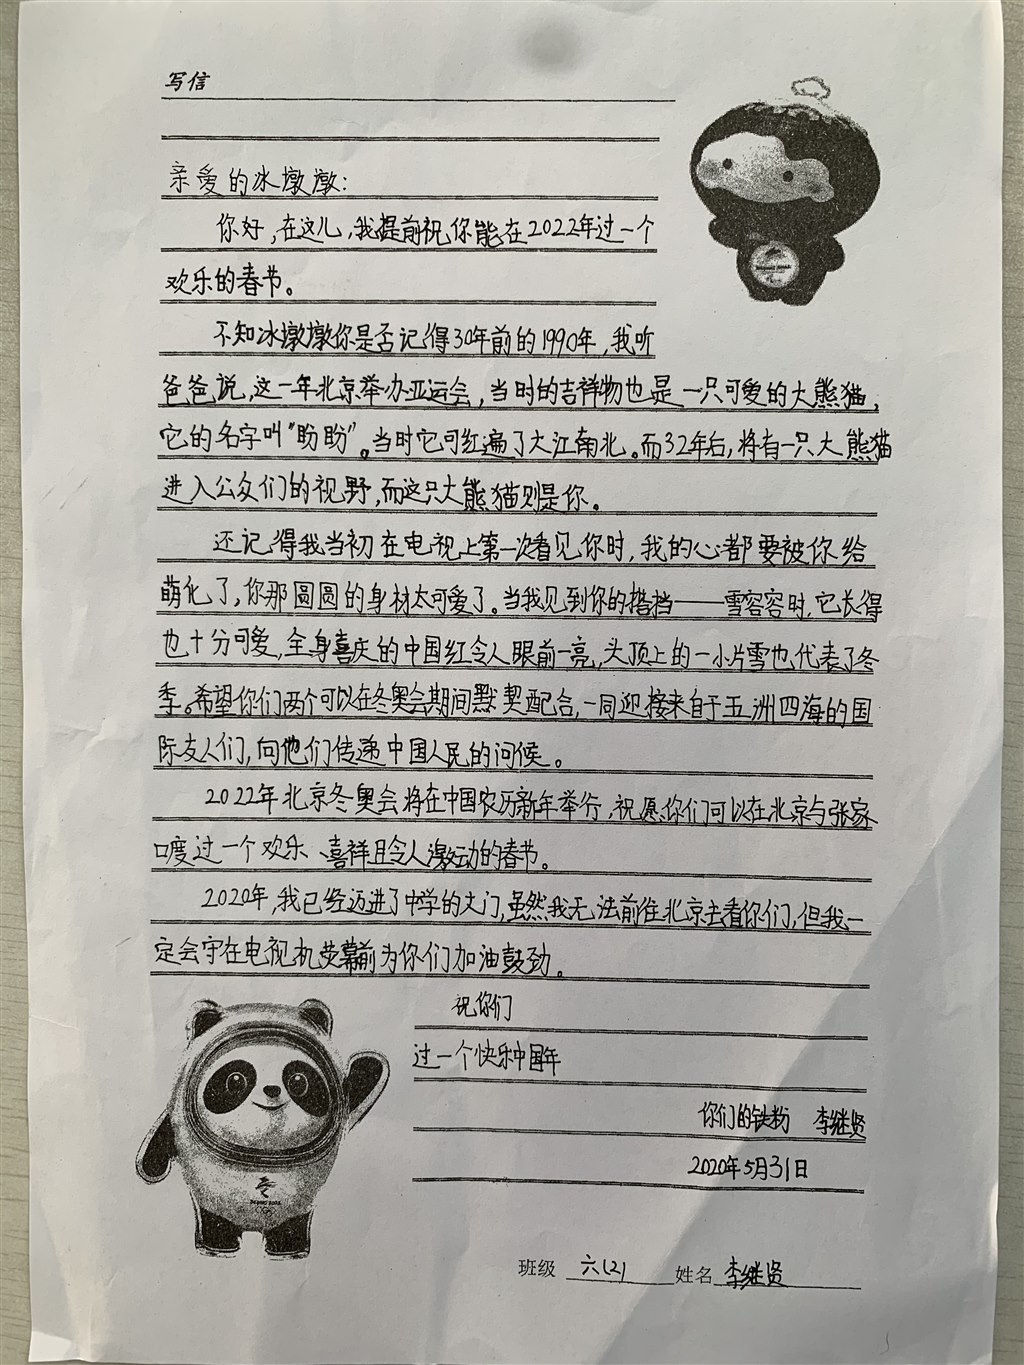 写信
亲爱的冰墩墩：
你好，在这儿，我提前祝你能在2022年过一个
欢乐的春节。
不知冰墩墩你是否记得30年前的1990年，我听
爸爸说，这一年北京举办亚运会，当时的吉祥物也是一只可爱的大熊猫，
它的名字叫“盼盼”。当时它可红遍了大江南北。而32年后，将有一只大熊猫
进入公众们的视野，而这只大熊猫则是你。
还记得我当初在电视上第一次看见你时，我的心都要被你给
萌化了，你那圆圆的身材太可爱了。当我见到你的搭档——雪容容时，它长得
也十分可爱，全身喜庆的中国红令人眼前一亮，头顶上的一小片雪也代表了冬
季。希望你们两个可以在冬奥会期间默契配合，一同迎接来自于五洲四海的国
际友人们，向他们传递中国人民的问候。
2022年北京冬奥会将在中国农历新年举行，祝愿你们可以在北京与张家
口度过一个欢乐、喜祥且令人激动的春节。
2020年，我已经迈进了中学的大门，虽然我无法前往北京去看你们，但我一
定会守在电视机荧幕前为你们加油鼓劲。
祝你们
过一个快乐中国年
你们的铁粉 李继贤
2020年5月31日
BEIJING 2022
班级 六(2) 姓名 李继贤